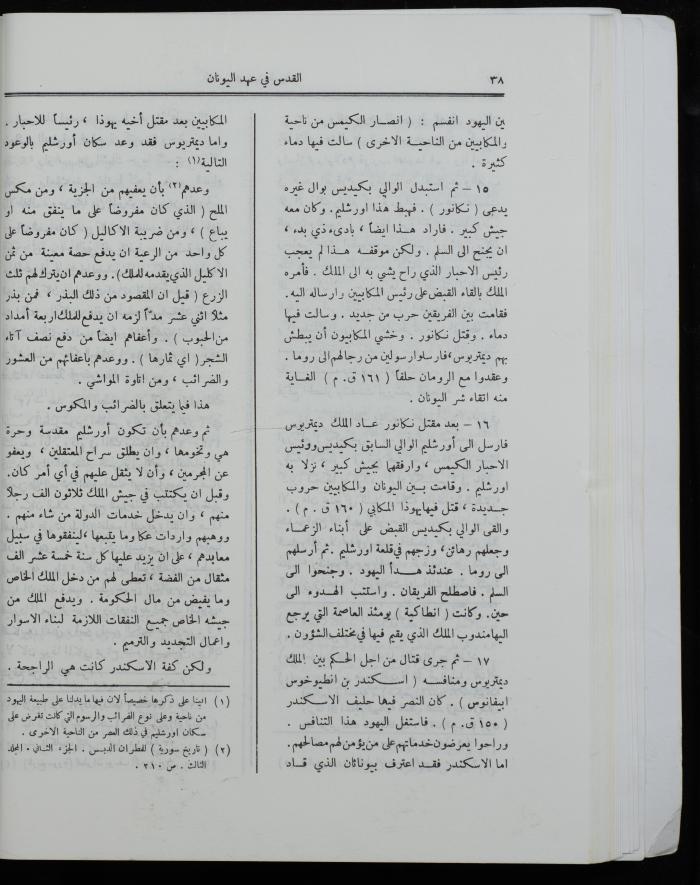 ٣٨
القدس في عهد اليونان
بن اليهود انقسم : ( انصار الكيمس من ناحية
والمكابيين من الناحية الاخرى ) سالت فيها دماء
كثيرة .
١٥ – ثم استبدل الوالي بكيديس بوال غيره
يدعى ( نكانور ) . فهبط هذا اورشليم . وكان معه
جيش كبير . فاراد هذا ايضاً ، بادىء ذي بدء ،
ان يجنح الى السلم . ولكن موقفه هذا لم يعجب
رئيس الاحبار الذي راح يشي به الى الملك . فأمره
الملك بالقاء القبض على رئيس المكابيين وارساله اليه .
فقامت بين الفريقين حرب من جديد . وسالت فيها
دماء . وقتل نكانور . وخشي المكابيون أن يبطش
بهم ديمتريوس ، فارسلوا رسولين من رجالهم الى روما .
وعقدوا مع الرومان حلفاً ( ١٦١ ق . م ) الغاية
منه اتقاء شر اليونان .
١٦ – بعد مقتل نكانور عاد الملك ديمتريوس
فارسل الى أورشليم الوالي السابق بكيديس ورئيس
الاحبار الكيمس ، وارفقهما بجيش كبير ، نزلا به
اورشليم . وقامت بين اليونان والمكابيين حروب
جديدة ، قتل فيها يهوذا المكابي ( ١٦٠ ق . م ) .
والقى الوالي بكيديس القبض على أبناء الزعماء
وجعلهم رهائن ، وزجهم في قلعة اورشليم . ثم أرسلهم
الى روما . عندئذ هدأ اليهود . وجنحوا الى
السلم . فاصطلح الفريقان . واستتب الهدوء الى
حين . وكانت ( انطاكية ) يومئذ العاصمة التي يرجع
اليها مندوب الملك الذي يقيم فيها في مختلف الشؤون .
١٧ – ثم جرى قتال من اجل الحكم بين الملك
ديمتريوس ومنافسه ( اسكندر بن انطيوخوس
ابيفانوس ) . كان النصر فيها حليف الاسكندر
( ١٥٠ ق . م ) . فاستغل اليهود هذا التنافس .
وراحوا يعرضون خدماتهم على من يؤمن لهم مصالحهم .
اما الاسكندر فقد اعترف بيوناثان الذي قاد
المكابيين بعد مقتل أخيه يهوذا ، رئيساً للاحبار .
واما ديمتريوس فقد وعد سكان أورشليم بالوعود
التالية (١) :
وعدهم (٢) بأن يعفيهم من الجزية ، ومن مكس
الملح ( الذي كان مفروضاً على ما ينفق منه او
يباع ) ، ومن ضريبة الاكاليل ( كان مفروضاً على
كل واحد من الرعية ان يدفع حصة معينة من ثمن
الاكليل الذي يقدمه للملك ) . ووعدهم ان يترك لهم ثلث
الزرع ( قيل ان المقصود من ذلك البذر ، فمن بذر
مثلاً اثني عشر مدّاً لزمه ان يدفع للملك اربعة أمداد
من الحبوب ) . وأعفاهم ايضاً من دفع نصف آتاء
الشجر ( اي ثمارها ) . ووعدهم باعفائهم من العشور
والضرائب ، ومن اتاوة المواشي .
هذا فيما يتعلق بالضرائب والمكوس .
ثم وعدهم بأن تكون أورشليم مقدسة وحرة
هي وتخومها ، وان يطلق سراح المعتقلين ، ويعفو
عن المجرمين ، وأن لا يثقل عليهم في أي أمر كان .
وقبل ان يكتتب في جيش الملك ثلاثون الف رجلا
منهم ، وان يدخل خدمات الدولة من شاء منهم .
ووهبهم واردات عكا وما يتبعها ، لينفقوها في سبيل
معابدهم ، على ان يزيد عليها كل سنة خمسة عشر الف
مثقال من الفضة ، تعطى لهم من دخل الملك الخاص
وما يفيض من مال الحكومة . ويدفع الملك من
جيشه الخاص جميع النفقات اللازمة لبناء الاسوار
واعمال التجديد والترميم .
ولكن كفة الاسكندر كانت هي الراجحة .
(١) اتينا على ذكرها خصيصاً لان فيها ما يدلنا على طبيعة اليهود
من ناحية وعلى نوع الضرائب والرسوم التي كانت تفرض على
سكان اورشليم في ذلك العصر من الناحية الاخرى .
(٢) ( تاريخ سورية ) للمطران الدبس . الجزء الثاني . المجلد
الثالث . ص ٢١٠ .